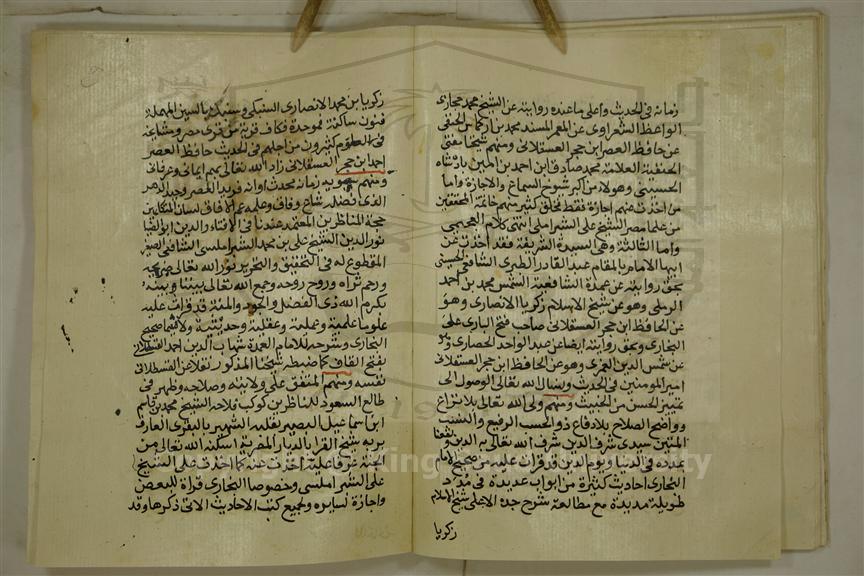 زمانه في الحديث وأعلى ما عنده روايته عن الشيخ محمد حجازي
الواعظ الشعراوي عن المعمر المسند محمد بن اركماس الحنفي
عن حافظ العصر ابن حجر العسقلاني ومنهم شيخنا مفتي
الحنفية العلامة محمد صادق ابن احمد بن بادشاه
الحسيني وهولاء من اكبر شيوخ السماع والاجازة واما
من اخذت عنهم اجازة فقط فخلق كثير منهم خاتمة المحققين
من علماء مصر الشيخ على الشبراملسي انتهى كلام العجيمي
واما الثالثة وهى السيدة الشريفة فقد اخذت عن
ابيها الامام بالمقام عبد القادر الطبرى الشافعي الحسيني
بحق روايته عن عمدة الشافعية الشمس محمد بن احمد
الرملي وهو عن شيخ الاسلام زكريا الانصارى وهو
عن الحافظ ابن حجر العسقلاني صاحب فتح البارى على
البخارى وبحق روايته ايضا عن عبد الواحد الحصارى وهو
عن شمس الدين العمرى وهو عن الحافظ ابن حجر العسقلاني
امير المومنين في الحديث ونسال الله تعالى الوصول الى
تمييز الحسن من الخبيث ومنهم ولى الله تعالى بلا نزاع
وواضح الصلاح بلا دفاع ذو الحسب الرفيع والنسب
المتين سيدى شرف الدين شرف الله تعالى به الدين ونفعنا
بمدده في الدنيا ويوم الدين قد قرات عليه من صحيح الامام
البخارى احاديث كثيرة من ابواب عديدة في مدد
طويلة مديدة مع مطالعة شرح جده الاعلى شيخ الاسلام
زكريا
زكريا بن محمد الانصارى السنيكي وسنيكة بالسين المهملة
فنون ساكنة فموحدة فكاف قرية من قرى مصر ومشايخه
في العلوم كثيرون من اجلهم في الحديث حافظ العصر
احمد ابن حجر العسقلاني زاد الله تعالى بهم ايماني وعرفاني
ومنهم سيبويه زمانه محدث اوانه فريد العصر وحيد الدهر
الذى فضله شاع وفاق وعلمه عم الافاق لسان المتكلمين
حجة المناظرين المعتمد عندنا في الافتاء والدين ابو الضيا
نور الدين الشيخ على بن محمد الشبراملسى الشافعى
المقطوع له في التحقيق والتحرير نور الله تعالى ضريحه
ورحم ثراه وروح روحه وجمع الله تعالى بيننا وبينه
بكرم الله ذى الفضل والجود والمنة قد قرات عليه
علوما علمية وعملية وعقلية وحديثية ولا سيما صحيح
البخارى وشرحه للامام العمدة شهاب الدين احمد القسطلاني
بفتح القاف كما ضبطه شيخنا المذكور نقلا عن القسطلاني
نفسه ومنهم المتفق على ولايته وصلاحه وظهر في
طالع السعود للناظرين كوكب فلاحه الشيخ محمد بن قاسم
ابن اسماعيل البصير بقلبه الشهير بالبقرى العارف
بربه شيخ القرا بالديار المصرية اسكنه الله تعالى من
الجنة غرفا علية اخذت عنه كما اخذت على الشيخ
على الشبراملسى وخصوصا البخارى قراة للبعض
واجازة لسايره ولجميع كتب الاحاديث الاتى ذكرها وقد